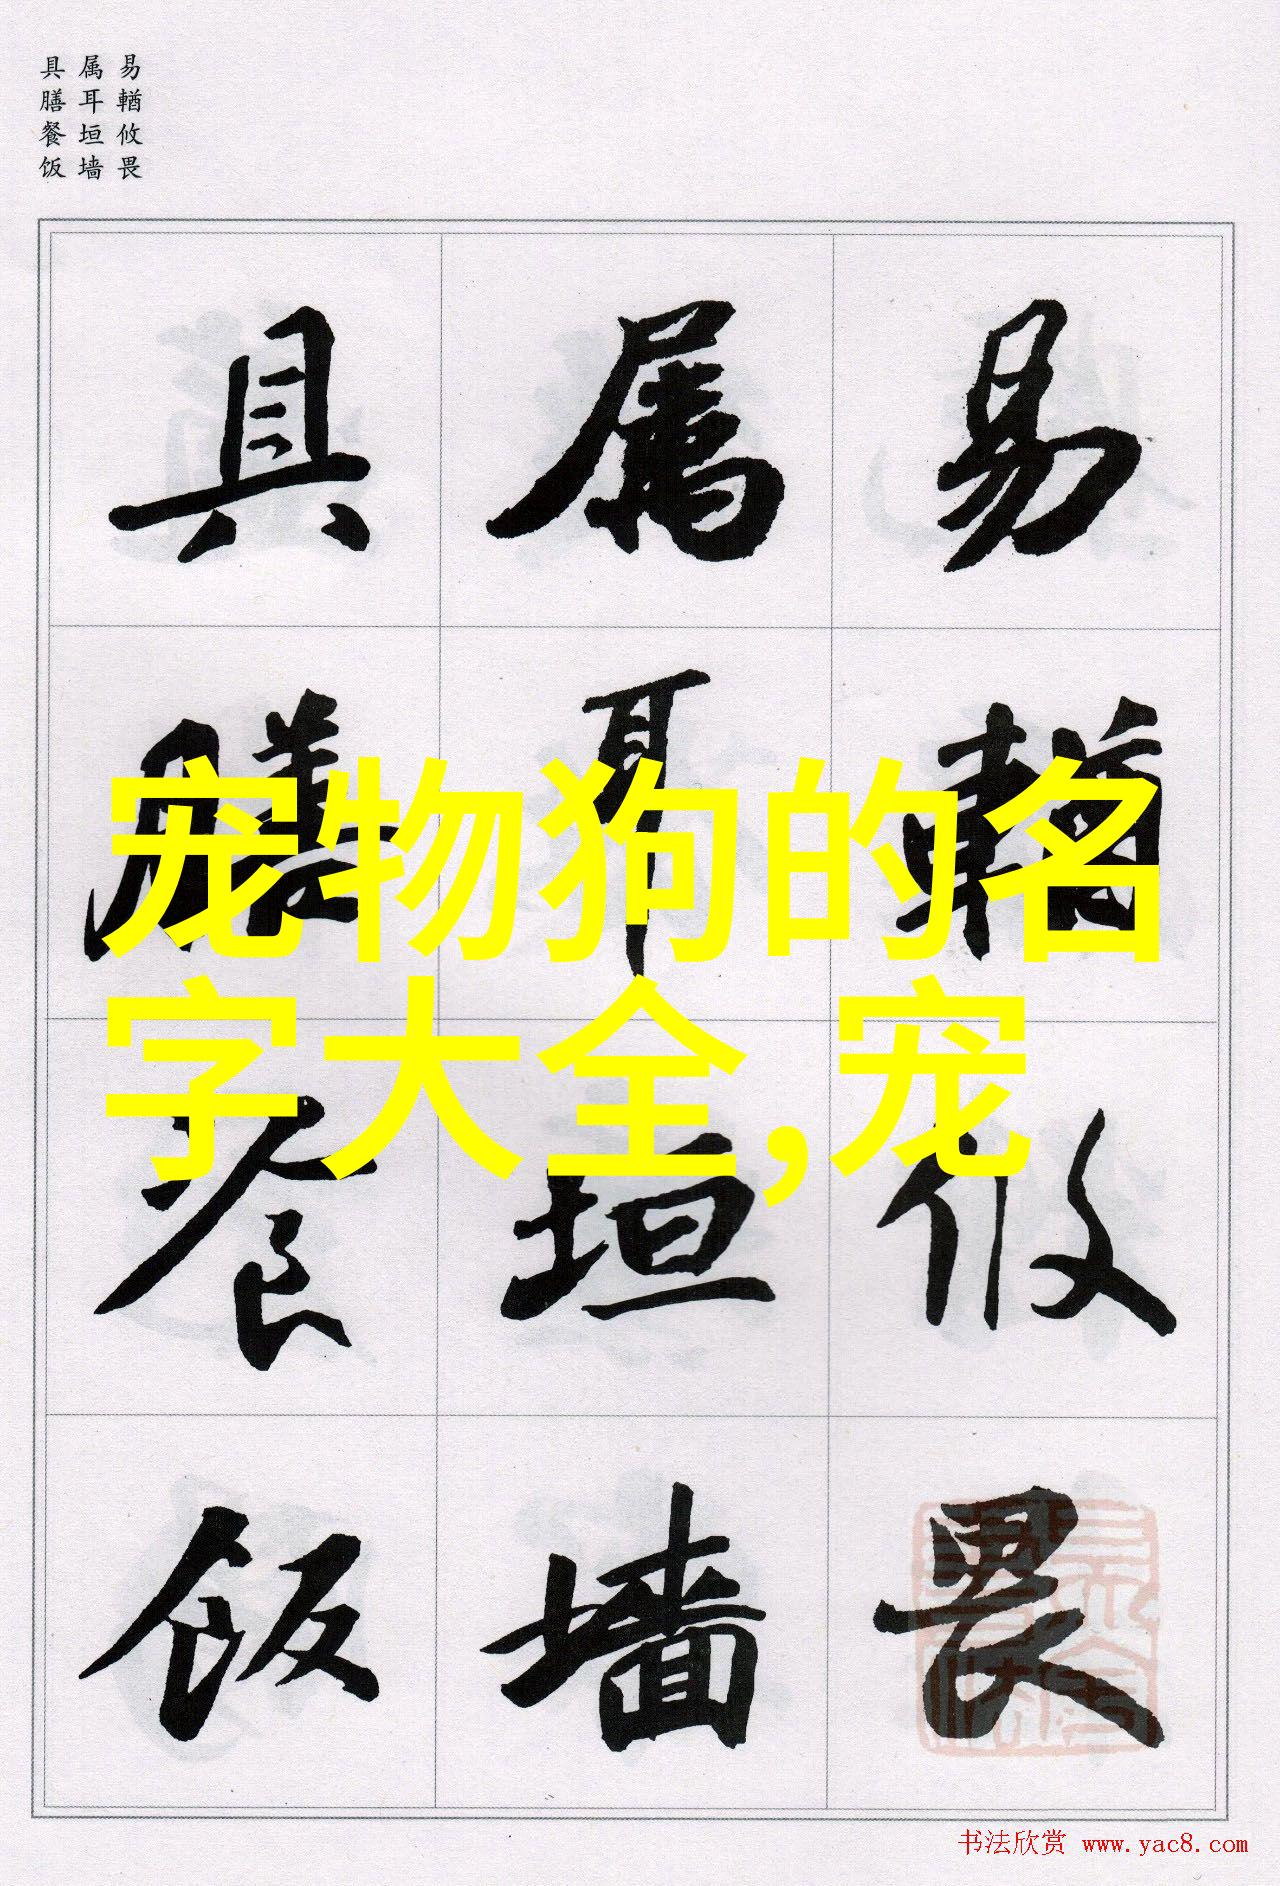 易輶攸畏
属耳垣墙
具膳餐饭
易輶攸畏
属耳垣墙
具膳餐饭
宠物狗的名
字大全,宠
书法欣赏 www.yac8.com